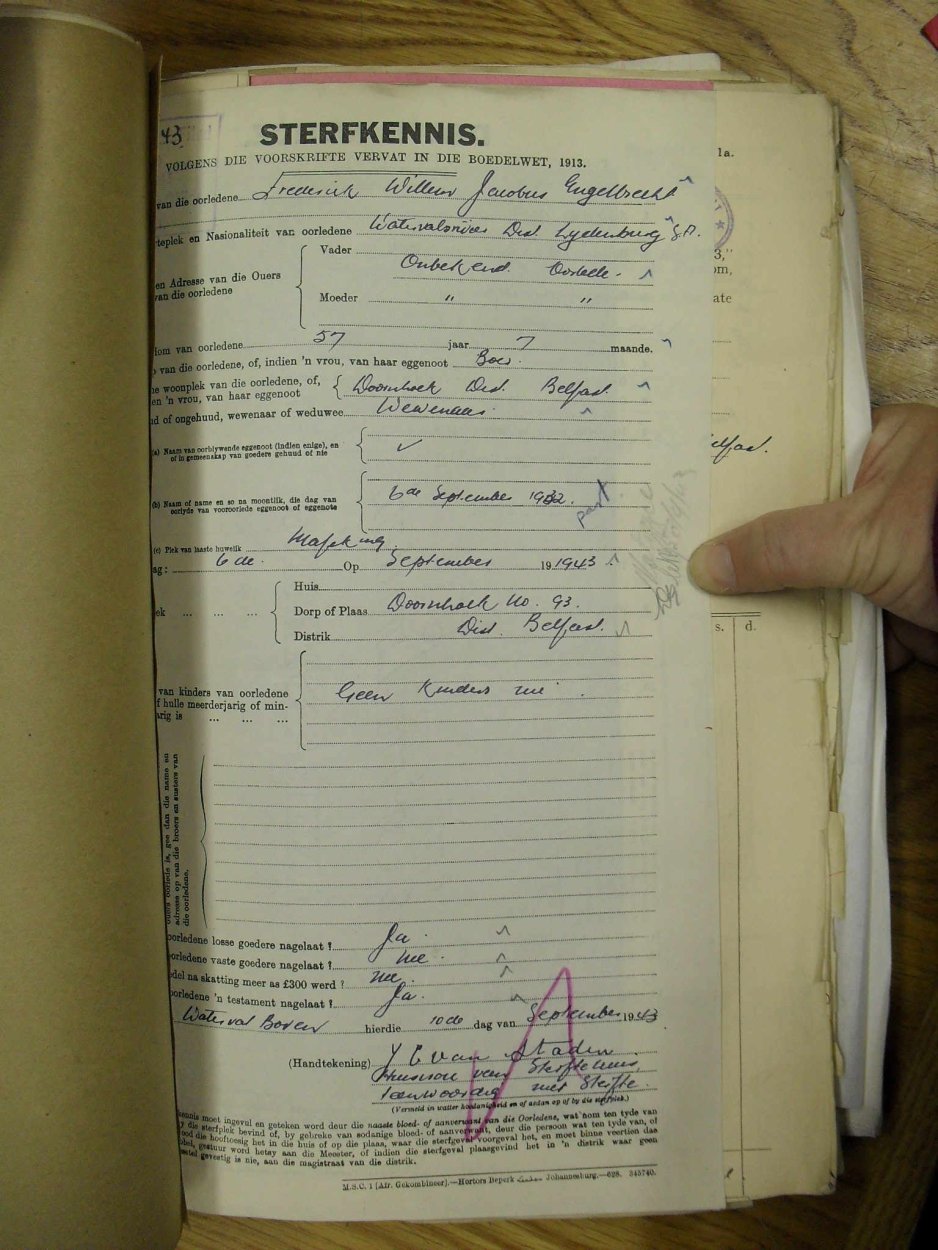 43
STERFKENNIS.
VOLGENS DIE VOORSKRIFTE VERVAT IN DIE BOEDELWET, 1913.
van die oorledene Frederick Willem Jacobus Engelbrecht
rteplek en Nasionaliteit van oorledene Watervalrivier Dist Lydenburg S.A.
en Adresse van die Ouers van die oorledene
Vader Onbekend. Oorlede.
Moeder " "
dom van oorledene 57 jaar 7 maande.
van die oorledene, of, indien 'n vrou, van haar eggenoot Boer.
ne woonplek van die oorledene, of, en 'n vrou, van haar eggenoot Doornhoek Dist. Belfast.
nd of ongehuud, wewenaar of weduwee Wewenaar.
(a) Naam van oorblywende eggenoot (indien enige), en of in gemeenskap van goedere gehuud of nie
(b) Naam of name en so na moontlik, die dag van oorlyde van vooroorlede eggenoot of eggenote 6de September 19
(c) Plek van laaste huwelik Mafeking
ag: 6 de Op September 19 1943
ek ... ...
Huis
Dorp of Plaas Doornhoek No. 93.
Distrik Dist. Belfast.
van kinders van oorledene
f hulle meerderjarig of min-
arig is ... ... ...
Geen Kinders nie.
ouers oorlede is, gee dan die name en
adresse op van die broers en susters van
die oorledene.
oorledene losse goedere nagelaat? Ja.
oorledene vaste goedere nagelaat? nee.
del na skatting meer as £300 werd? nee.
oorledene 'n testament nagelaat? Ja.
Waterval Boven hierdie 10de dag van September 1943
(Handtekening) van Staden
van Sterfhuis
teenwoordig met Sterfte.
(Vermeld in watter hoedanigheid en of aedan op of by die sterfplek.)
kennis moet ingevul en geteken word deur die naaste bloed- of aanverwant van die Oorledene, wat hom ten tyde van
y die sterfplek bevind of, by gebreke van sodanige bloed- of aanverwant, deur die persoon wat ten tyde van, of
ood die hooftoesig het in die huis of op die plaas, waar die sterfgeval voorgeval het, en moet binne veertien dae
gestuur word hetsy aan die Meester, of indien die sterfgeval plaasgevind het in 'n distrik waar geen
gevestig is nie, aan die magistraat van die distrik.
M.S.C. 1 (Afr. Gekombineer).—Hortors Beperk Johannesburg.—628. 345740.
1a.
3,"
om,
ate
elfast.
s. d.